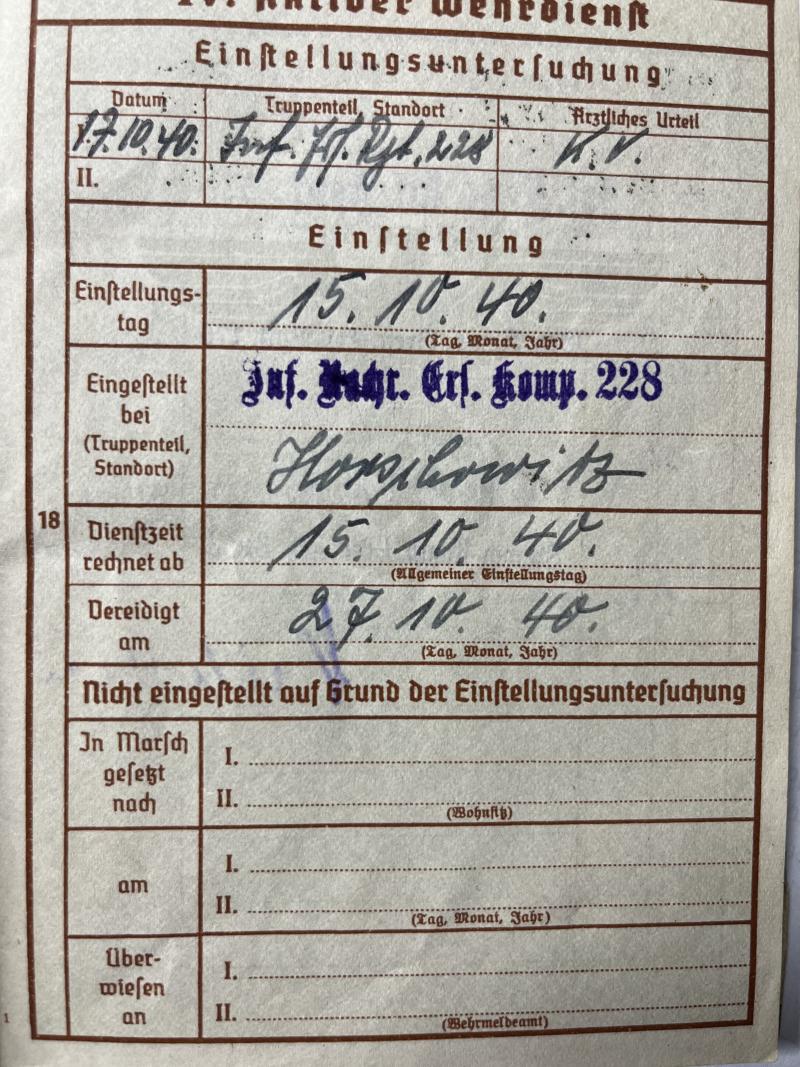 IV. Aktiver Wehrdienst
Einstellungsuntersuchung
Datum Truppenteil, Standort Ärztliches Urteil
17.10.40. Inf. Rgt. 228 K.V.
II.
Einstellung
Einstellungs-
tag
15. 10. 40.
(Tag, Monat, Jahr)
Eingestellt
bei
(Truppenteil,
Standort)
Inf. Nachr. Ers. Komp. 228
Horschowitz
18
Dienstzeit
rechnet ab
15. 10. 40.
(Allgemeiner Einstellungstag)
Vereidigt
am
27. 10. 40.
(Tag, Monat, Jahr)
Nicht eingestellt auf Grund der Einstellungsuntersuchung
In Marsch
gesetzt
nach
I.
II.
(Wohnsitz)
am
I.
II.
(Tag, Monat, Jahr)
Über-
wiesen
an
I.
II.
(Wehrmeldeamt)
1